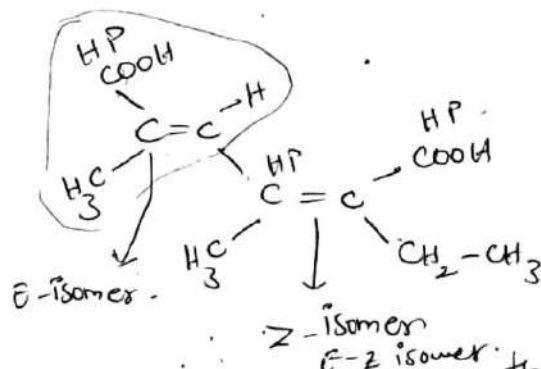 HP
COOH
H
C=C
H3C
HP
C = C
HP
COOH
H3C
CH2-CH3
E-isomer.
Z-isomer
E-Z isomer.